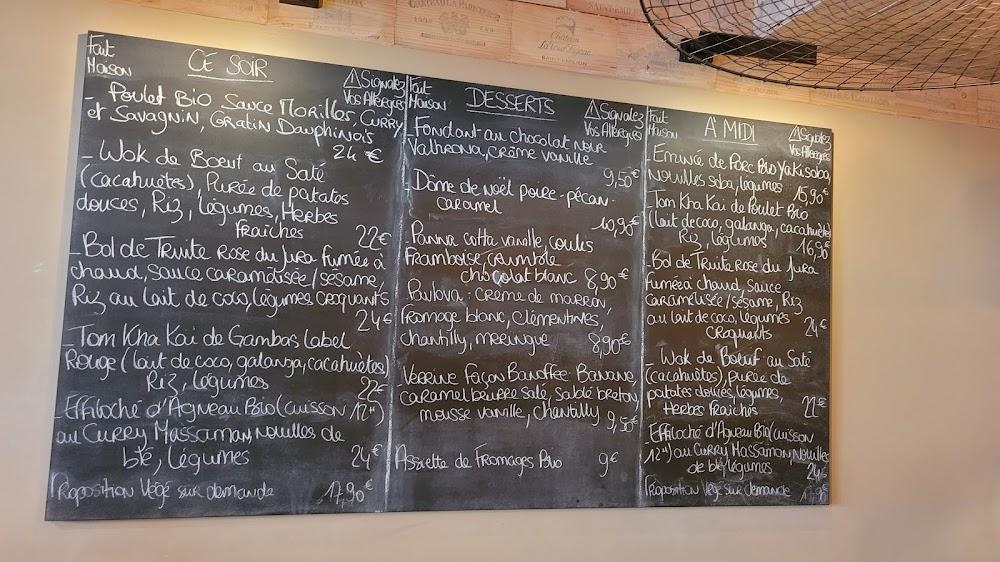 Fait Maison
CE SOIR
⚠Signalez
Vos Allergies
Poulet Bio Sauce Morilles, Curry
et Savagnin, Gratin Dauphinois
24 €
- Wok de Boeuf au Saté
(cacahuètes), Purée de patates
douces, Riz, légumes, Herbes
Fraiches
22€
- Bol de Truite Rose du Jura Fumée à
chaud, sauce caramélisée/sésame,
Riz au lait de coco, légumes croquants
24€
- Tom Kha Kai de Gambas Label
Rouge (lait de coco, galanga, cacahuètes)
Riz, légumes
22€
- Effiloché d'Agneau Bio (cuisson 12H)
au Curry Massaman, nouilles de
blé, légumes
24€
Proposition Végé sur demande 17,90€
Fait Maison
DESSERTS
⚠Signalez
Vos Allergies
- Fondant au chocolat noir
Valhrona, crème vanille
9,50€
- Dôme de Noël poire-pécan-
caramel
10,90€
Panna cotta vanille, coulis
Framboise, crumble
chocolat blanc 8,90€
Pavlova: crème de marron,
fromage blanc, clémentines,
chantilly, meringue 8,90€
- Verrine Façon Banoffee Banane,
caramel beurre salé, sablé breton,
mousse vanille, chantilly 9,50€
Assiette de Fromages Bio 9€
Fait Maison
A MIDI
⚠Signalez
Vos Allergies
- Emincé de Porc Bio Yakisoba,
nouilles soba, légumes 15,90€
- Tom Kha Kai de Poulet Bio
(lait de coco, galanga, cacahuètes)
Riz, légumes 16,90€
- Bol de Truite Rose du Jura
Fumée à chaud, sauce
caramélisée/sésame, Riz
au lait de coco, légumes
Croquants
24€
- Wok de Boeuf au Saté
(cacahuètes), purée de
patates douces, légumes,
Herbes Fraiches
22€
Effiloché d'Agneau Bio (cuisson
12H) au Curry Massaman, Nouilles
de blé, légumes 24€
Proposition Végé sur demande 17,90€